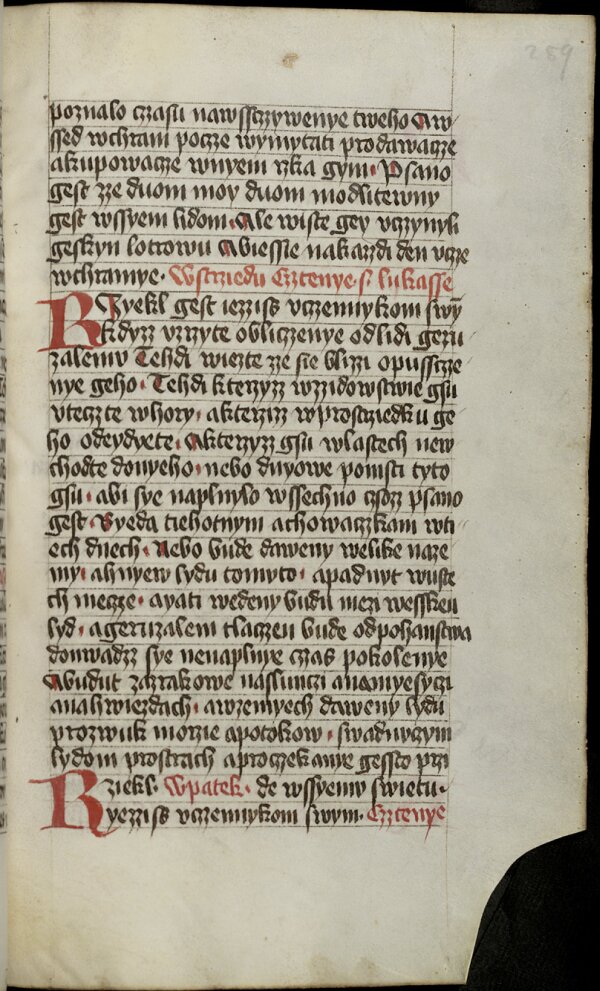 259
poznalo czasu nawssczywenye tweho Aw-
ssed wchram pocze wymytati prodawacze
akupowacze wnyem rzka gym. Psano
gest zze duom moy duom modlitewny
gest wssyem lidom. Ale wiste gey vczynyli
geskyn lotrowu Abiessie nakazdi den vcze
wchramye. Wstrziedu Cztenye. s. lukasse
Rzyekl gest iezziss vczennykom swy
kdyzz vzrzyte obliczenye od lidi geru
zalemw Tehdi wiezte zze sie blizi opusscze
nye geho. Tehdi kterzyzz wzidowstwie gsu
vteczte whory. akterzizz wprostrziedku ge
ho odeydyete. Akterzyzz gsu wlastech new
chodte donyeho. nebo dnyowe pomsti tyto
gsu. abi sye naplnylo wssechno czozz psano
gest. Byeda tiehotnym achowaczkam wti
ech dnech. Nebo bude daweny welike naze
my. ahnyew lydu tomuto. apadnut wuste
ch mecze. ayati wedeny budu mezi wessken
lyd. ageruzalem tlaczen bude odpohanstwa
donwadzz sye nenaplnye czas pokolenye
Abudut zazrakowe nasslunczi anamyesyczi
anahwiezdach. awzemyech daweny lydu
prozwuk morzie apotokow. swadnuczym
lydom prostrach aproczekanye gessto przi
Rziekl. Wpatek. de wssyemu swietu.
yezziss vczennykom swym. Cztenye